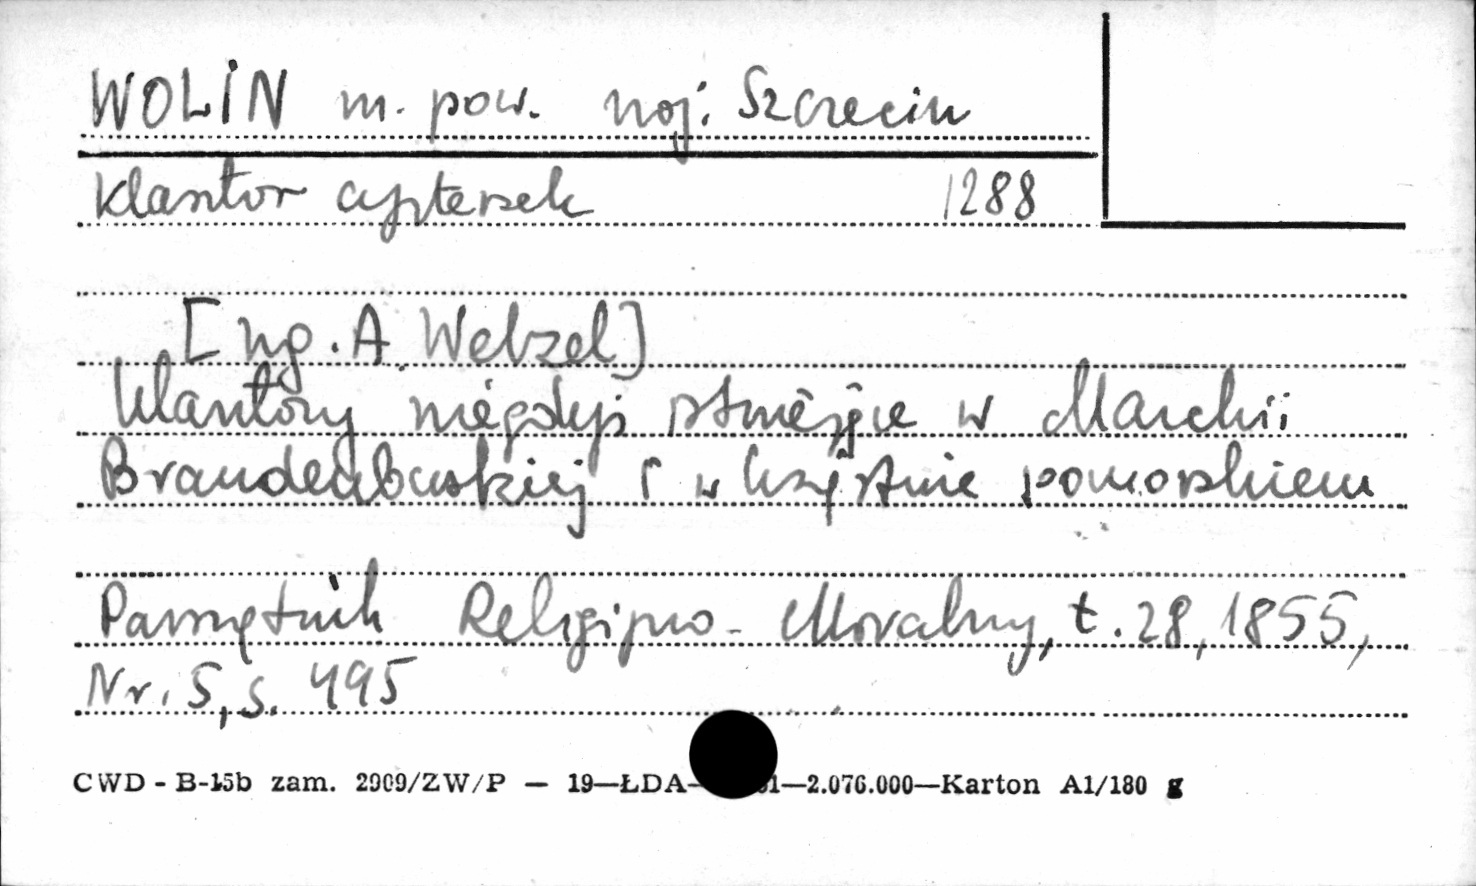 WOLIN m. pow. woj. Szczecin
klasztor cysterek 1288
[wg. A. Wetzel]
klasztory niegdyś istniejące w Marchii
Brandenburskiej i w księstwie pomorskiem
Pamiętnik Religijno-Moralny, t. 28, 1855,
Nr. 5, s. 495
CWD - B-15b zam. 2909/ZW/P — 19—ŁDA- 1—2.076.000—Karton A1/180 g